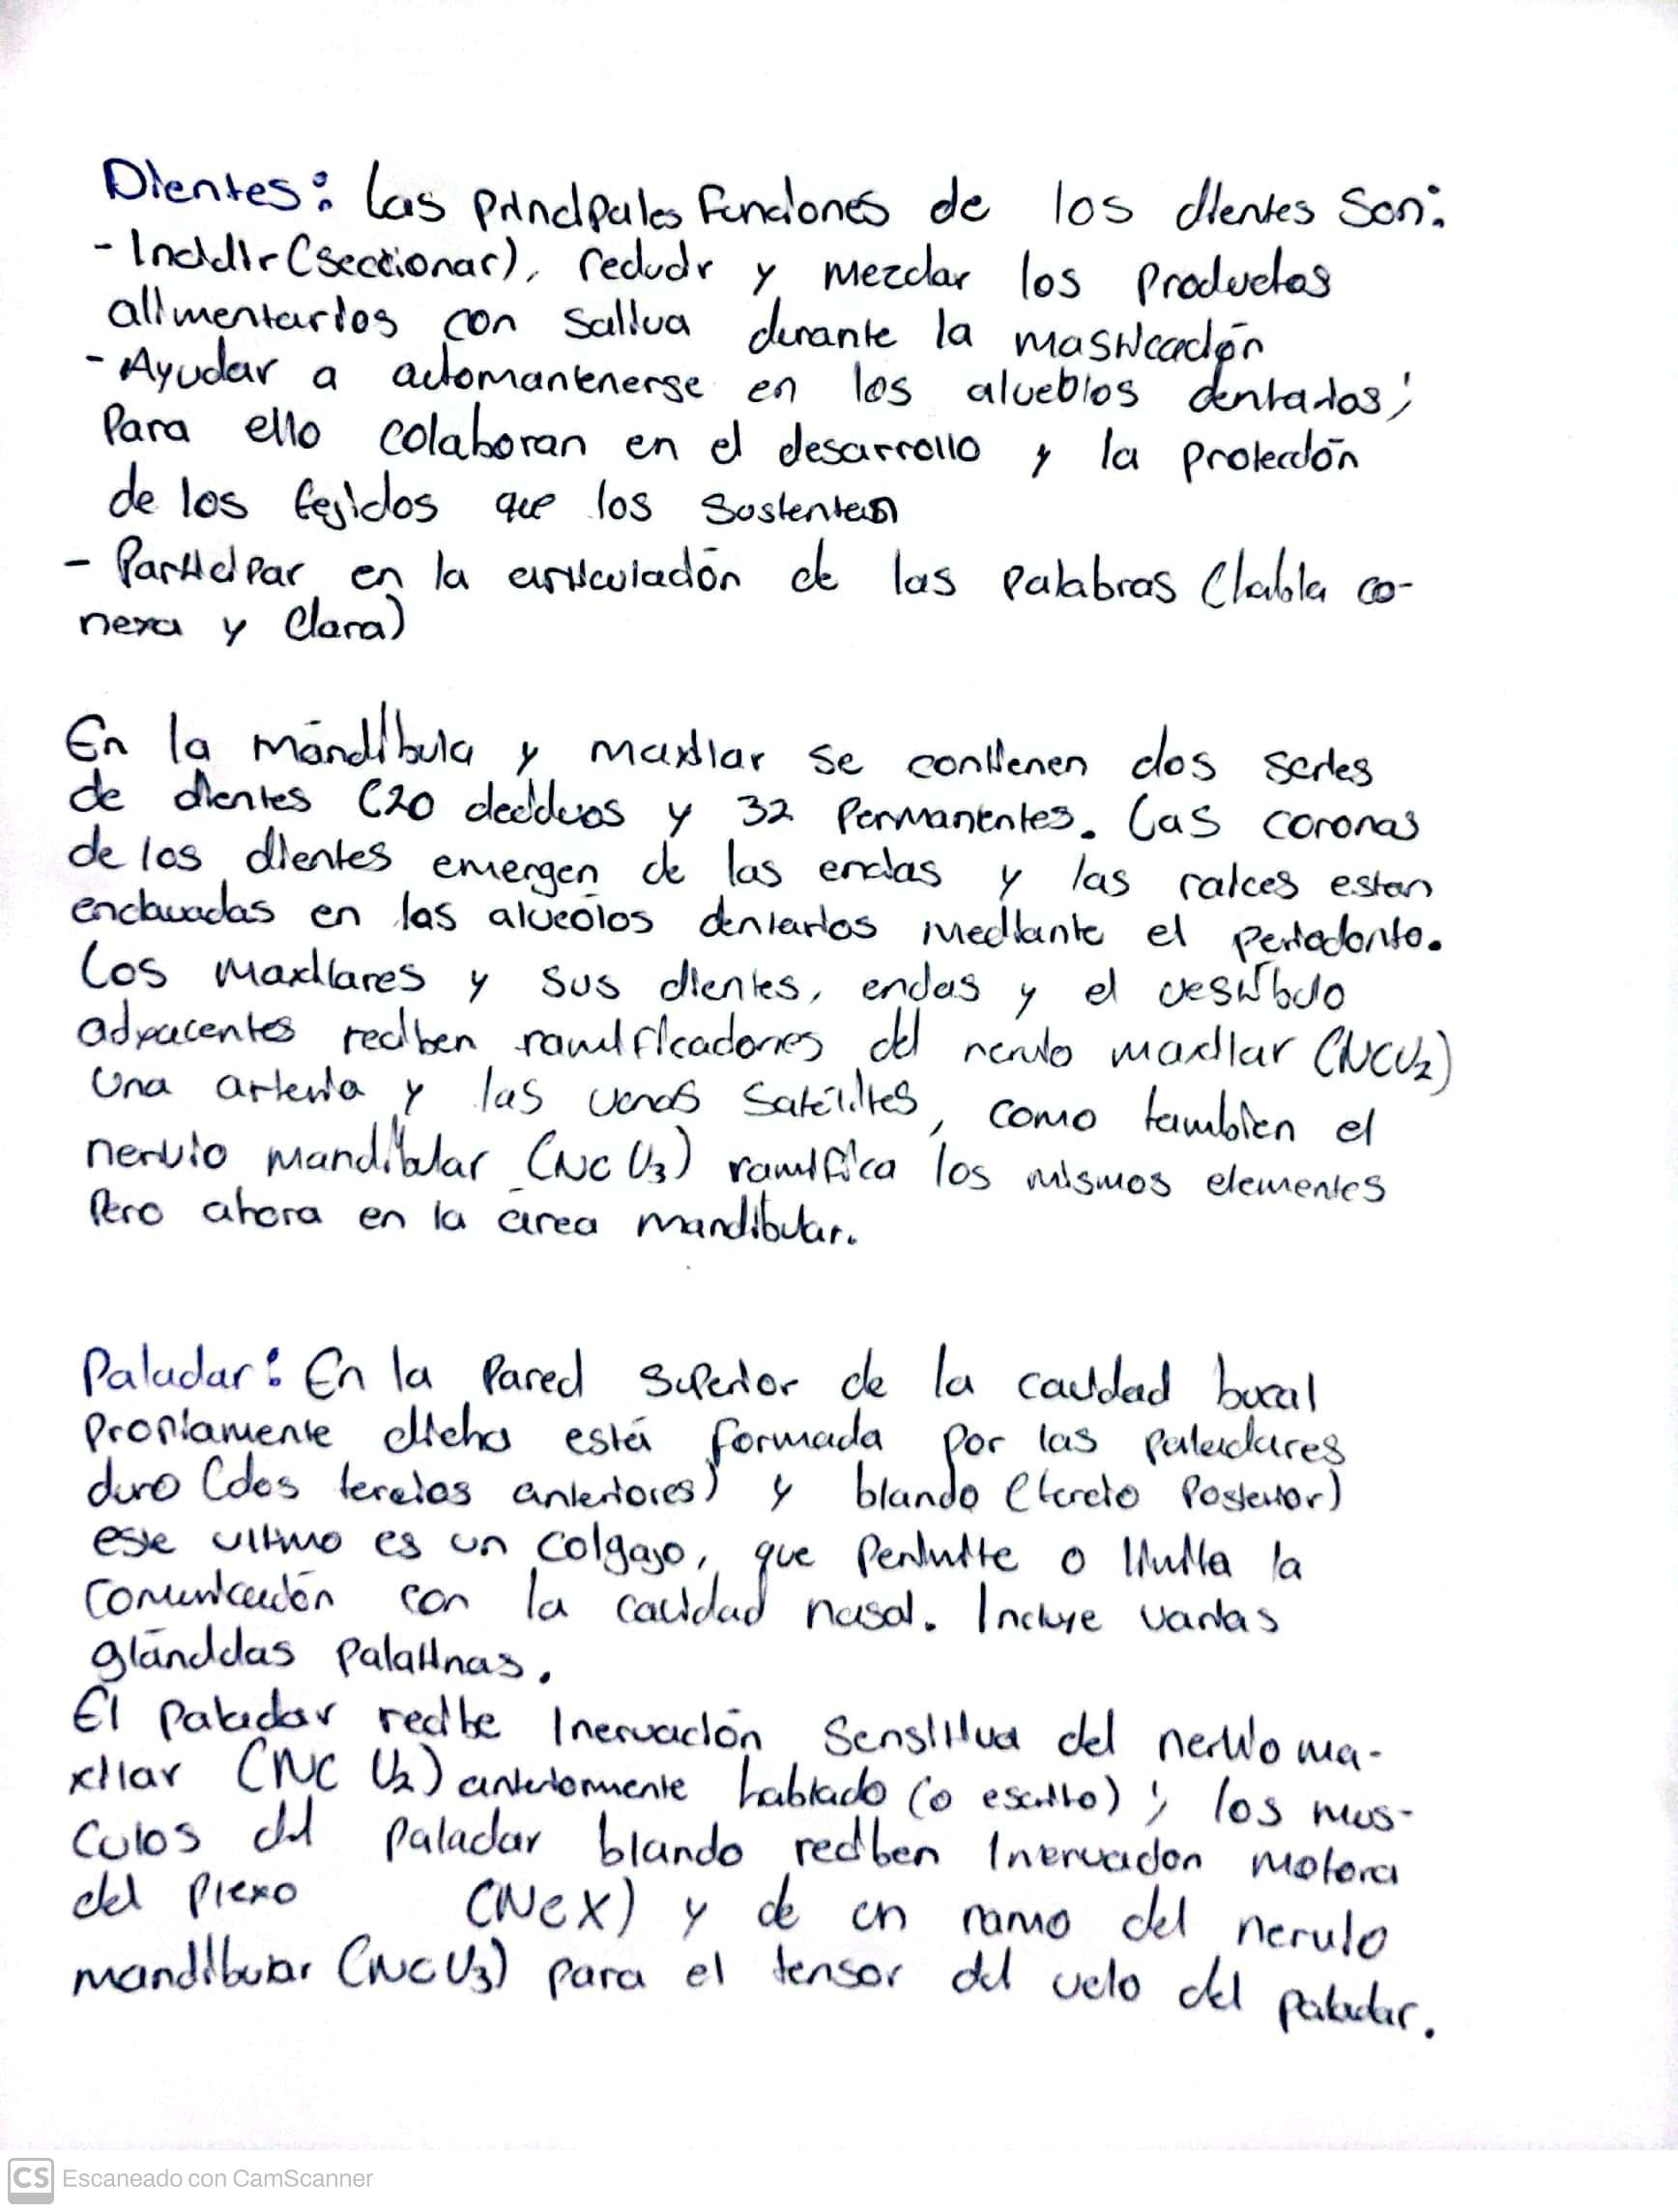 Dientes: Las principales funciones de los dientes son:
- Incidir (seccionar), reducir y mezclar los productos
alimentarios con saliva durante la masticación
- Ayudar a automantenerse en los alveolos dentarios;
Para ello colaboran en el desarrollo y la protección
de los tejidos que los sustentan
- Participar en la articulación de las palabras (habla co-
nexa y clara)
En la mándibula y maxilar se contienen dos series
de dientes (20 deciduos y 32 Permanentes. Las coronas
de los dientes emergen de las encias y las raices estan
enclavadas en los alveólos dentarios mediante el periodonto.
Los maxilares y sus dientes, encias y el vestíbulo
adyacentes reciben ramificaciones del nervio maxilar (NCV₂)
Una arteria y las venas satélites, como tambien el
nervio mandibular (NC V₃) ramifica los mismos elementes
Pero ahora en la área mandibular.
Paladar: En la Pared superior de la cavidad bucal
propiamente dicha está formada por las paladares
duro (dos tercios anteriores) y blando (tercio Posterior)
este ultimo es un colgajo, que permite o limita la
comunicación con la cavidad nasal. Incluye varias
glándulas palatinas.
El paladar recibe Inervación sensitiva del nervio ma-
xilar (NC V₂) anteriormente hablado (o escrito); los mus-
culos del paladar blando reciben Inervacion motora
del plexo (NC X) y de un ramo del nervio
mandibular (NC V₃) para el tensor del velo del paladar.
CS Escaneado con CamScanner